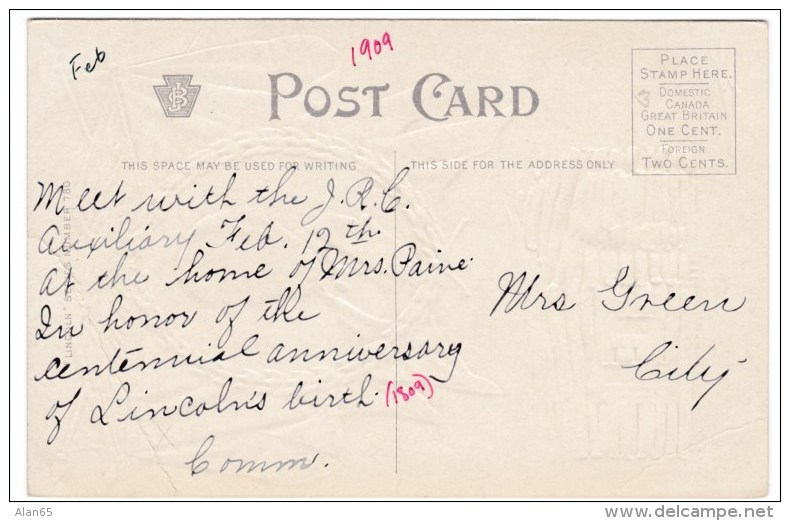 Feb
1909
POST CARD
PLACE
STAMP HERE.
DOMESTIC
CANADA
GREAT BRITAIN
ONE CENT.
FOREIGN
TWO CENTS.
THIS SPACE MAY BE USED FOR WRITING
THIS SIDE FOR THE ADDRESS ONLY
Meet with the J. R. C.
Auxiliary Feb. 12th
at the home of Mrs. Paine.
In honor of the
centennial anniversary
of Lincoln's birth. (1809)
Comm.
Mrs Green
City
"LINCOLN" SERIES NUMBER 780
Alan65
www.delcampe.net